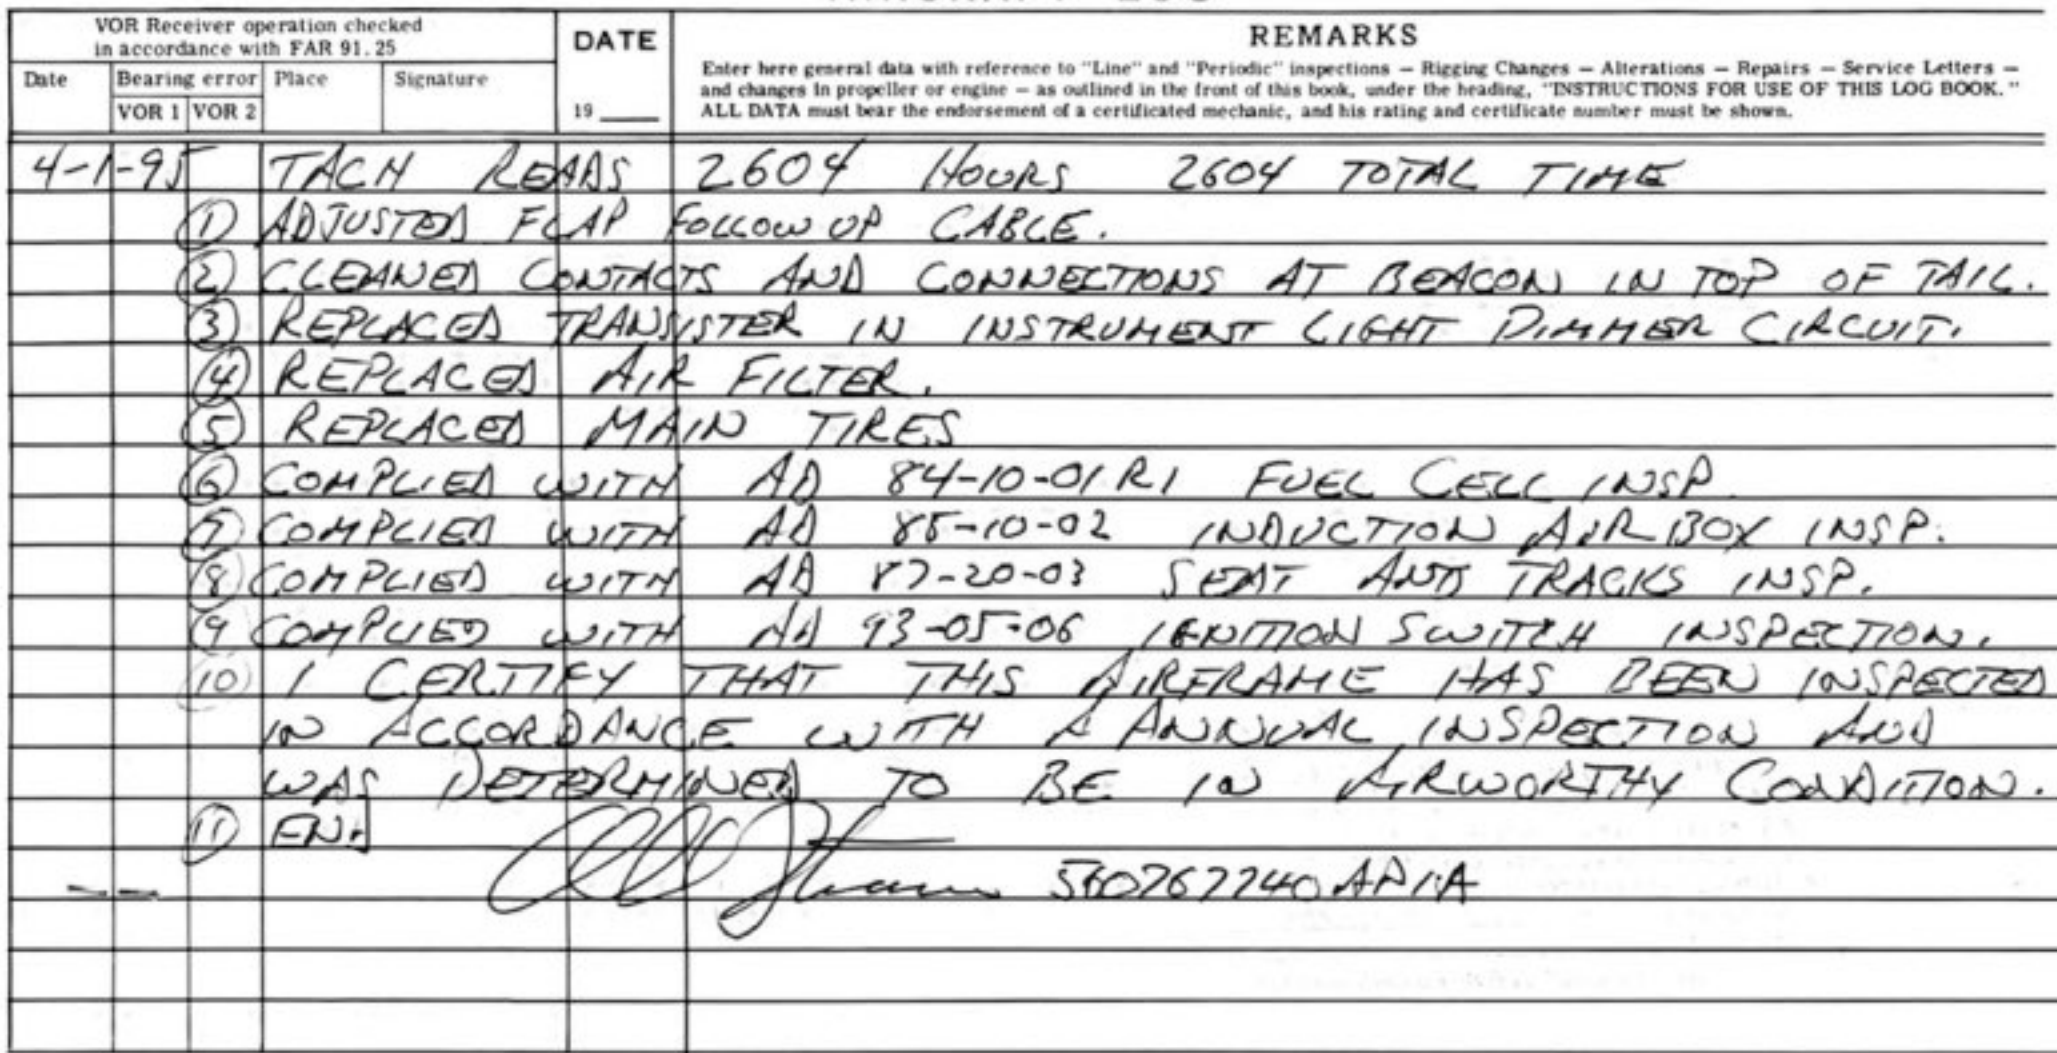 VOR Receiver operation checked
in accordance with FAR 91.25
DATE
REMARKS
Date
Bearing error
Place
Signature
VOR 1
VOR 2
19
Enter here general data with reference to "Line" and "Periodic" inspections — Rigging Changes — Alterations — Repairs — Service Letters —
and changes in propeller or engine — as outlined in the front of this book, under the heading, "INSTRUCTIONS FOR USE OF THIS LOG BOOK."
ALL DATA must bear the endorsement of a certificated mechanic, and his rating and certificate number must be shown.
4-1-95 TACH READS 2604 HOURS 2604 TOTAL TIME
① ADJUSTED FLAP FOLLOW UP CABLE.
② CLEANED CONTACTS AND CONNECTIONS AT BEACON IN TOP OF TAIL.
③ REPLACED TRANSISTER IN INSTRUMENT LIGHT DIMMER CIRCUIT.
④ REPLACED AIR FILTER.
⑤ REPLACED MAIN TIRES
⑥ COMPLIED WITH AD 84-10-01R1 FUEL CELL INSP.
⑦ COMPLIED WITH AD 85-10-02 INDUCTION AIR BOX INSP.
⑧ COMPLIED WITH AD 87-20-03 SEAT AND TRACKS INSP.
⑨ COMPLIED WITH AD 93-05-06 IGNITION SWITCH INSPECTION.
⑩ I CERTIFY THAT THIS AIRFRAME HAS BEEN INSPECTED
IN ACCORDANCE WITH A ANNUAL INSPECTION AND
WAS DETERMINED TO BE IN AIRWORTHY CONDITION.
⑪ END
APIA